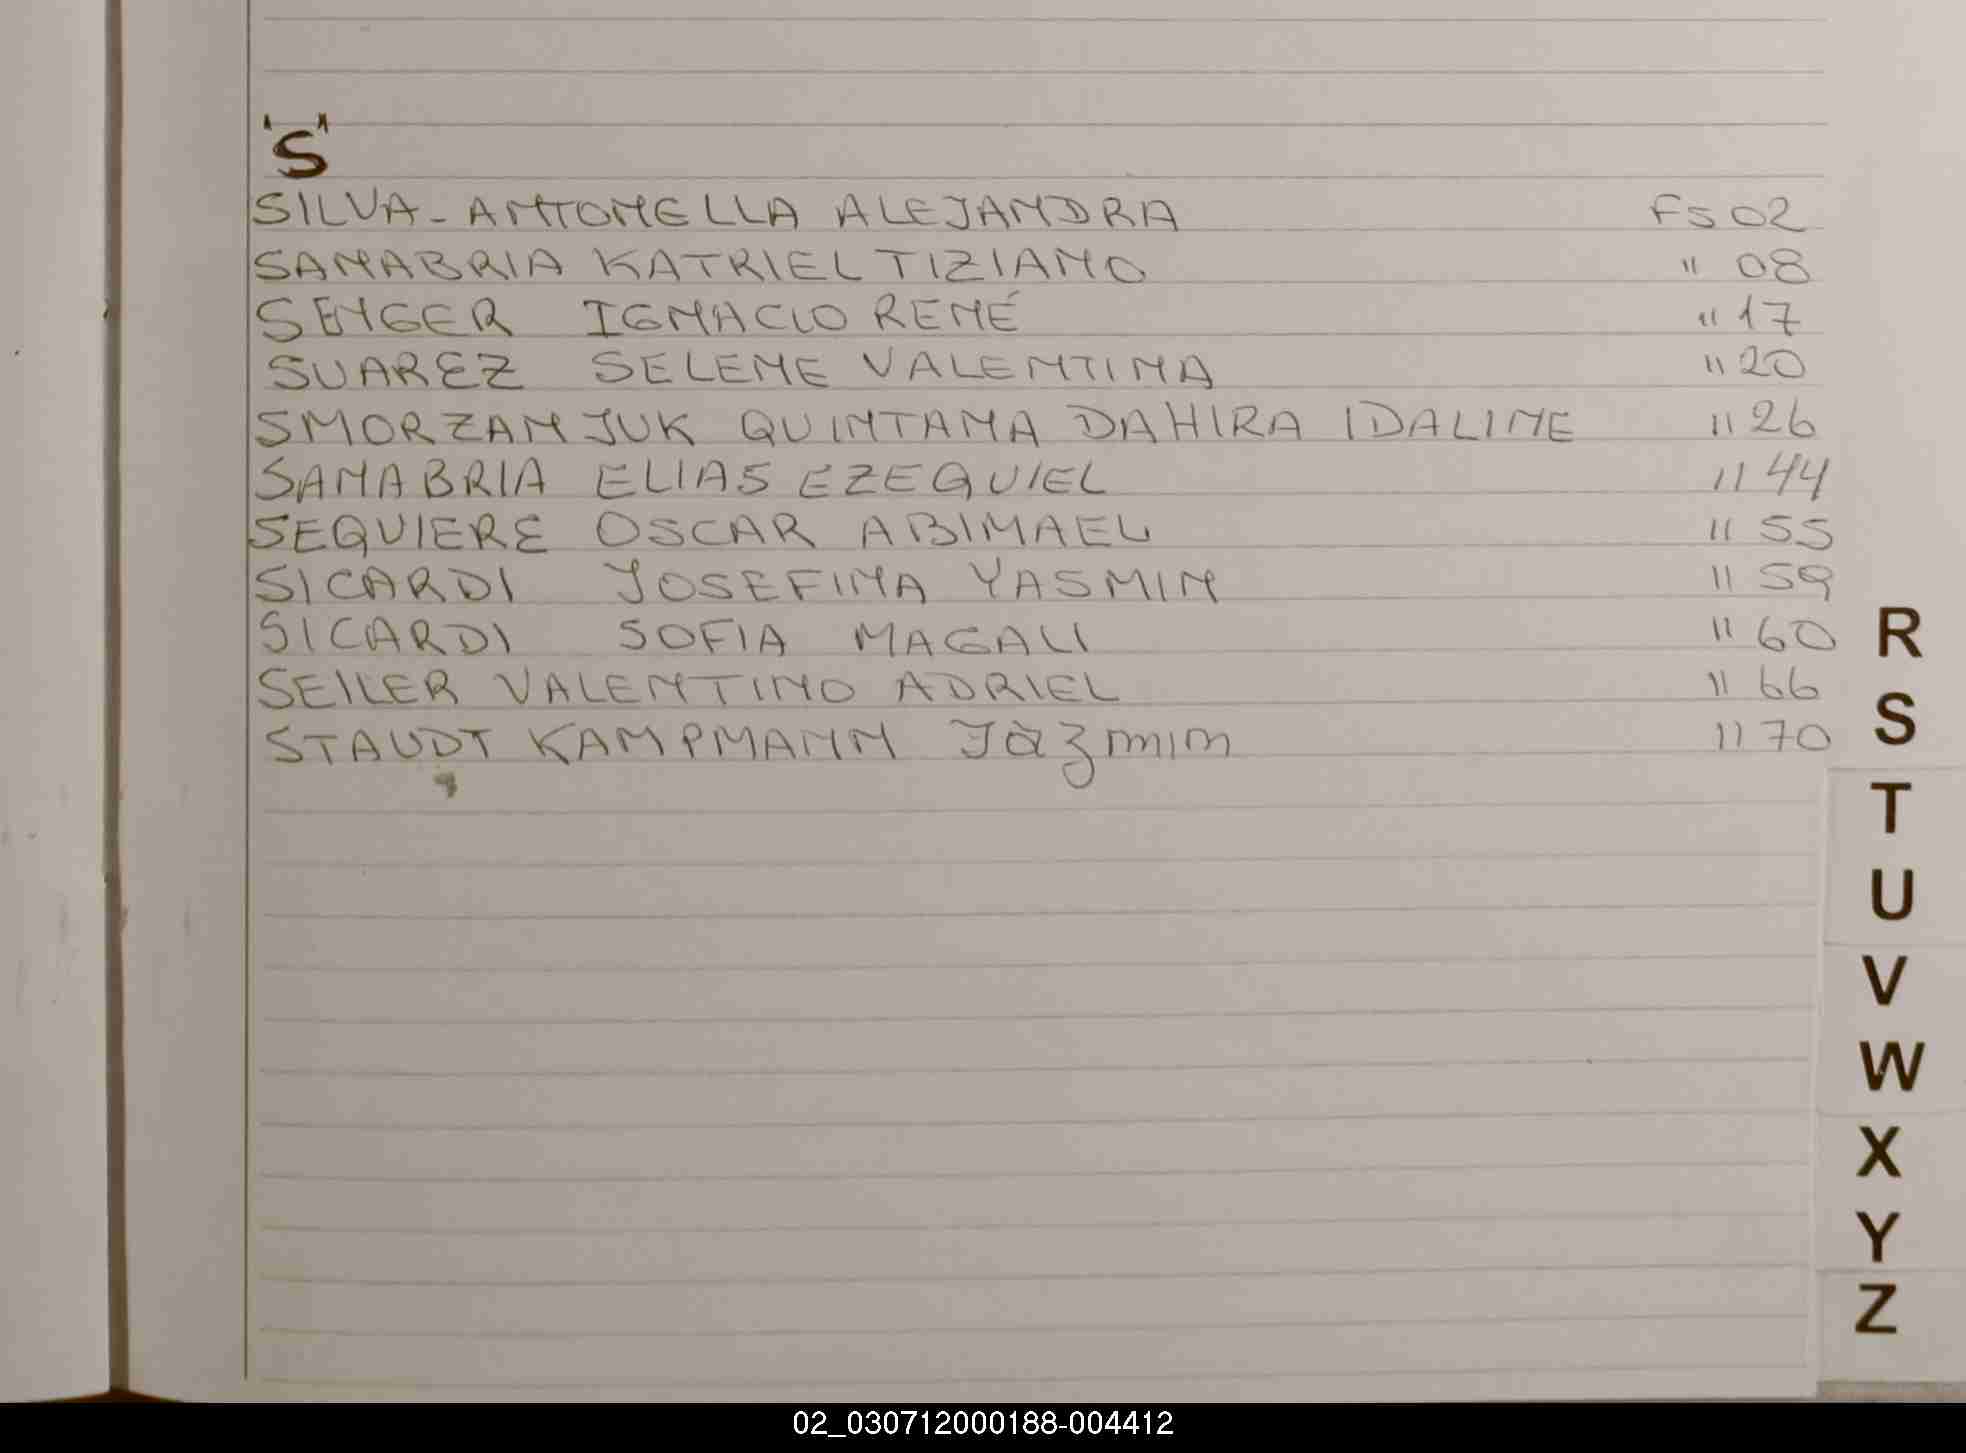 "S"
SILVA - ANTONELLA ALEJANDRA FS 02
SANABRIA KATRIEL TIZIANO " 08
SENGER IGNACIO RENÉ " 17
SUAREZ SELENE VALENTINA " 20
SMORZANJUK QUINTANA DAHIRA IDALINE " 26
SANABRIA ELIAS EZEQUIEL " 44
SEQUIERE OSCAR ABIMAEL " 55
SICARDI JOSEFINA YASMIN " 59
SICARDI SOFIA MAGALI " 60
SEILER VALENTINO ADRIEL " 66
STAUDT KAMPMANN Jazmin " 70
R
S
T
U
V
W
X
Y
Z
02_030712000188-004412